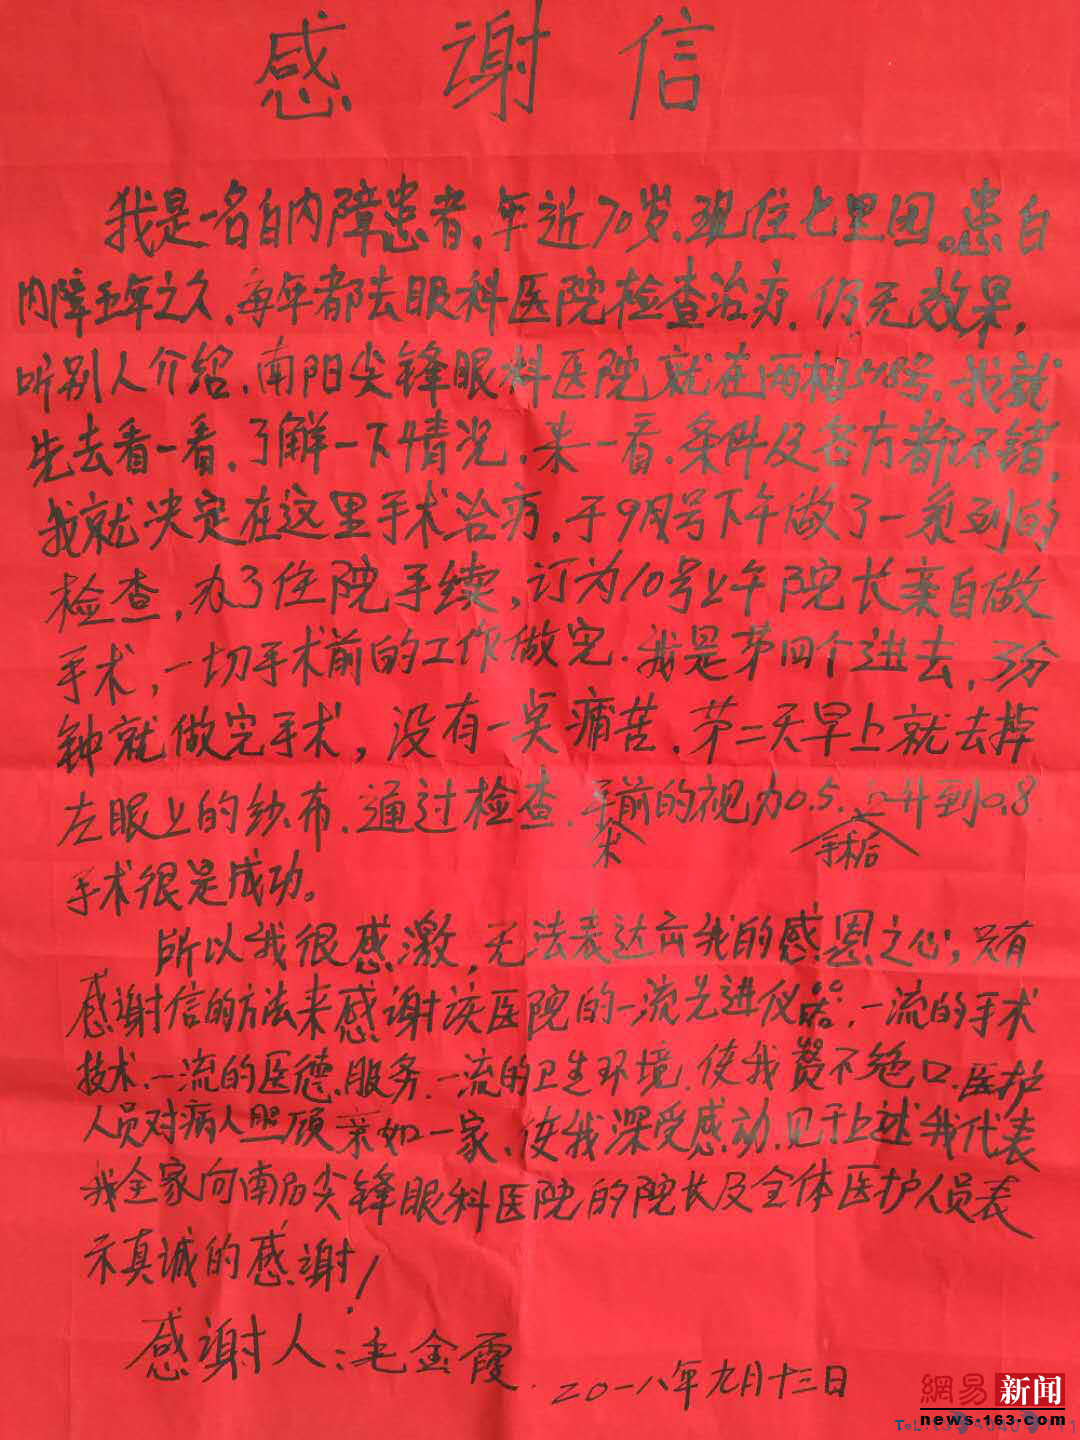 感谢信
我是一名白内障患者，年近70岁，现住七里园。患白
内障五年之久，每年都去眼科医院检查治疗，仍无效果，
听别人介绍，南阳尖锋眼科医院就在两相号，我就
先去看一看，了解一下情况，来一看，条件及各方都不错，
我就决定在这里手术治疗，于9月号下午做了一系列的
检查，办了住院手续，订为10号上午院长亲自做
手术，一切手术前的工作做完，我是第四个进去，3分
钟就做完手术，没有一点痛苦，第二天早上就去掉
左眼上的纱布，通过检查，手术前的视力0.5，手术后升到0.8
手术很是成功。
所以我很感激，无法表达出我的感恩之心，只有
感谢信的方法来感谢该医院的一流先进仪器，一流的手术
技术，一流的医德服务，一流的卫生环境，使我赞不绝口，医护
人员对病人照顾亲如一家，使我深受感动，见于上述我代表
我全家向南阳尖锋眼科医院的院长及全体医护人员表
示真诚的感谢！
感谢人：毛金霞
二〇一八年九月十三日
網易新闻
news.163.com